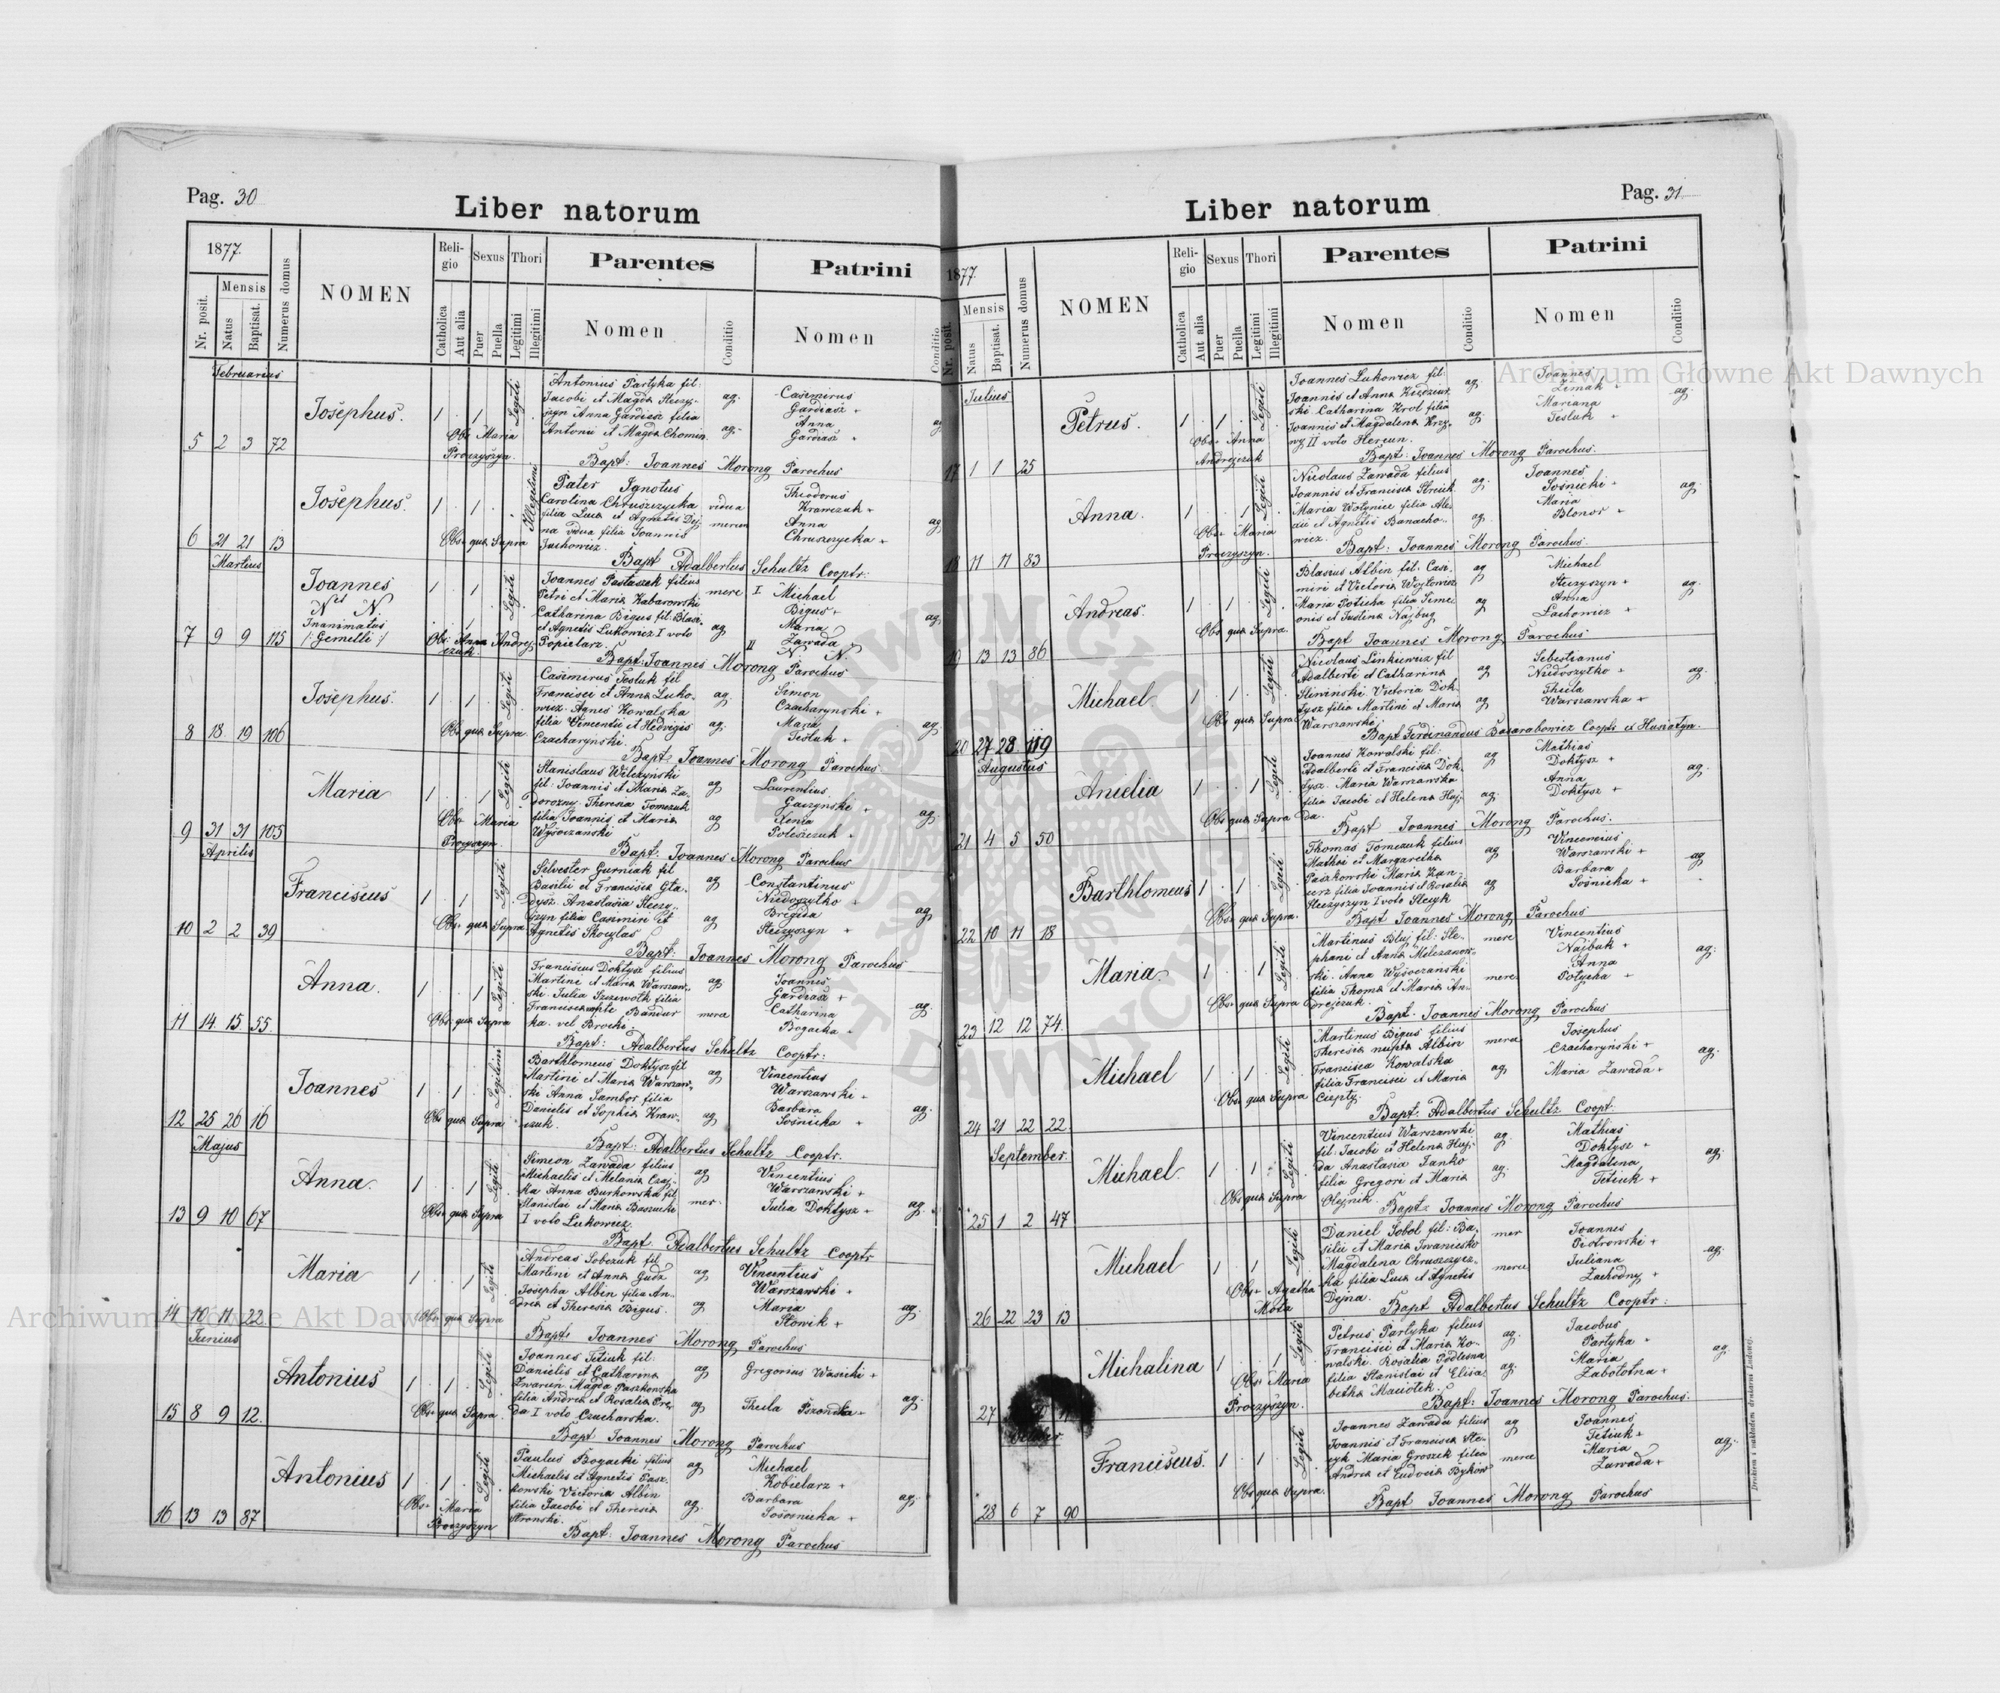 Pag. 30
Liber natorum
1877.
Nr. posit.
Mensis
Natus
Baptisat.
Numerus domus
NOMEN
Religio
Catholica
Aut alia
Sexus
Puer
Puella
Thori
Legitimi
Illegitimi
Parentes
Nomen
Conditio
Patrini
Nomen
Conditio
Februarius
5 2 3 72
Josephus.
1 1
Legiti
Obs: Maria
Proczyszyn.
Antonius Partyka fil:
Jacobi et Magda Steczy-
szyn Anna Gardiasz filia
Antonii et Magda Chomin.
ag.
ag.
Casimirus
Gardiasz +
Anna
Gardiasz +
Bapt: Joannes Morong Parochus
6 21 21 13
Josephus.
1 1
Illegitimi
Obs: quæ Supra
Pater Ignotus
Carolina Chruszczycka
filia Luca et Agnetis Dej-
na vidua filia Joannis
Juchowicz.
vidua
mercen
Theodorus
Krawczuk +
Anna
Chruszczycka +
ag
Bapt Adalbertus Schultz Cooptr:
Martius
7 9 9 115
Joannes
et
N. N.
Inanimatus
/:Gemelli:/
1 1
Legiti
Obs: Anna Andrej-
czuk.
Joannes Pastuszek filius
Petri et Maria Kabarowski
Catharina Bigus fil: Blasii
et Agnetis Lukowicz I voto
Popielarz.
merc
ag
I Michael
Bigus +
Maria
Zawada +
II N. N.
ag
Bapt: Joannes Morong Parochus
8 18 19 106
Josephus.
1 1
Legiti
Obs: quæ Supra.
Casimirus Tesluk fil
Francisci et Anna Luko-
wicz. Agnes Kowalska
filia Vincentii et Hedvigis
Czacharynski.
ag.
ag.
Simon
Czacharynski +
Maria
Tesluk +
ag
Bapt: Joannes Morong Parochus
9 31 31 105
Maria
1 1
Legiti
Obs: Maria
Proczyszyn.
Stanislaus Wilczynski
fil: Joannis et Maria Za-
dorozny. Theresia Tomczuk
filia Joannis et Maria
Wysoczanski
ag
ag
Laurentius
Gaczynski +
Xenia
Poleszczuk +
ag
Bapt: Joannes Morong Parochus
Aprilis
10 2 2 39
Franciscus
1 1
Legiti
Obs: quæ Supra
Silvester Gurniak fil.
Basilii et Francisca Gla-
dysz. Anastasia Steczy-
szyn filia Casimiri et
Agnetis Skoczlas
ag
ag
Constantinus
Niedoszytko +
Brigida
Steczyszyn +
ag
Bapt: Joannes Morong Parochus
11 14 15 55
Anna.
1 1
Legiti
Obs: quæ Supra
Franciscus Doktysz filius
Martini et Maria Warszaw-
ski. Julia Szczewolk filia
ka. vel Brocki.
ag
merce
Joannes
Gardiasz +
Catharina
Bogacka +
ag
Bapt: Adalbertus Schultz Cooptr:
12 25 26 16
Joannes
1 1
Legitim
Obs: quæ Supra
Barthlomeus Doktysz fil
Martini et Maria Warszaw-
ski Anna Sambor filia
Danielis et Sophia Kraw-
czuk.
ag
ag
Vincentius
Warszawski +
Barbara
Sosnicka +
ag
Bapt: Adalbertus Schultz Cooptr.
Majus
13 9 10 67
Anna.
1 1
Legiti
Obs: quæ Supra
Simeon Zawada filius
Michaelis et Melania Czaj-
ka Anna Burkowska fil
Stanislai et Maria Baszucki
I voto Lukowicz.
ag
mer.
Vincentius
Warszawski +
Julia Doktysz +
ag.
Bapt. Adalbertus Schultz Cooptr
14 10 11 22
Maria
1 1
Legiti
Obs: quæ Supra
Andreas Sobczuk fil
Martini et Anna Gudz
Josepha Albin filia An-
drea et Theresia Bigus.
ag
ag
Vincentius
Warszawski +
Maria
Slowik +
ag.
Bapt: Joannes Morong Parochus
Junius
15 8 9 12.
Antonius
1 1
Legiti
Obs: quæ Supra.
Joannes Tetiuk fil:
Danielis et Catharina
Zwarun Magda Paszkowska
filia Andrea et Rosalia Pre-
da I voto Czucharska.
ag
ag
Gregorius Wasicki +
Thecla Pszondka +
ag
Bapt Joannes Morong Parochus
16 13 13 87
Antonius
1 1
Legiti
Obs: Maria
Proczyszyn
Paulus Bogacki filius
Michaelis et Agnetis Pasz-
kowski Victoria Albin
filia Jacobi et Theresia
Stronski.
ag
ag.
Michael
Kobielarz +
Barbara
Sososnicka +
ag.
Bapt: Joannes Morong Parochus
Pag. 31
Liber natorum
1877.
Nr. posit.
Mensis
Natus
Baptisat.
Numerus domus
NOMEN
Religio
Catholica
Aut alia
Sexus
Puer
Puella
Thori
Legitimi
Illegitimi
Parentes
Nomen
Conditio
Patrini
Nomen
Conditio
Julius
17 1 1 25
Petrus.
1 1
Legiti
Obs: Anna
Andrejczuk
Joannes Lukowicz fil:
Joannis et Anna Kiedziur-
ski Catharina Krol filia
Joannis et Magdalena Krzy-
wy II voto Hercun.
ag
ag.
Joannes
Zimak +
Mariana
Tesluk +
ag.
Bapt: Joannes Morong Parochus.
18 11 11 83
Anna.
1 1
Legiti
Obs: Maria
Proczyszyn.
Nicolaus Zawada filius
Joannis et Francisca Streuk.
Maria Wolynice filia Ale-
xii et Agnetis Banacho-
wicz.
ag.
ag.
Joannes
Sosnicki +
Maria
Blonos +
ag.
Bapt: Joannes Morong Parochus.
19 13 13 86
Andreas.
1 1
Legiti
Obs: quæ Supra.
Blasius Albin fil: Casi-
miri et Victoria Wojtowicz
Maria Poticha filia Sime-
onis et Justina Najbug
ag
ag
Michael
Steczyszyn +
Anna
Lachowicz +
ag.
Bapt Joannes Morong Parochus
20 27 28 119
Michael.
1 1
Legiti
Obs: quæ Supra
Nicolaus Linkiewicz fil
Adalberti et Catharina
Sliwinski Victoria Dok-
tysz filia Martini et Maria
Warszawski
ag
ag
Sebestianus
Niedoszytko +
Thecla
Warszawska +
ag.
Bapt Ferdinandus Basarabowicz Cooptr ex Husiatyn.
Augustus
21 4 5 50
Anielia
1 1
Legiti
Obs: quæ Supra
Joannes Kowalski fil:
Adalberti et Francisca Dok-
tysz. Maria Warszawska
filia Jacobi et Helena Huj-
da.
ag
ag.
Mathias
Doktysz +
Anna
Doktysz +
ag.
Bapt Joannes Morong Parochus.
22 10 11 18
Barthlomeus
1 1
Legiti
Obs: quæ Supra.
Thomas Tomczuk filius
Mathei et Margaretha
Paszkowski Maria Kan-
cerz filia Joannis et Rosalia
Steczyszyn I voto Stecyk
ag
ag
Vincencius
Warszawski +
Barbara
Sosnicka +
ag
Bapt Joannes Morong Parochus
23 12 12 74.
Maria.
1 1
Legiti
Obs: quæ Supra
Martinus Bluj fil: Ste-
phani et Anna Melczanow-
ski. Anna Wysoczanski
filia Thoma et Maria An-
drejczuk.
merc
merc
Vincentius
Najbuk +
Anna
Potycha +
ag.
Bapt. Joannes Morong Parochus
24 21 22 22
Michael
1 1
Legiti
Obs: quæ Supra
Martinus Bigus filius
Theresia nupta Albin
Francisca Kowalska
filia Francisci et Maria
Ciupty.
merce
ag
Josephus
Czacharyński +
Maria Zawada +
ag.
Bapt: Adalbertus Schultz Coopt.
September.
25 1 2 47
Michael.
1 1
Legiti
Obs: quæ Supra
Vincentius Warszawski
fil: Jacobi et Helena Huj-
da Anastasia Janko
filia Gregori et Maria
Olejnik.
ag.
ag.
Mathias
Doktysz +
Magdalena
Tetiuk +
ag.
Bapt: Joannes Morong Parochus
26 22 23 13
Michael
1 1
Legiti
Obs: Agatha
Mota
Daniel Sobol fil: Ba-
silii et Maria Iwanicsko
Magdalena Chruszczyc-
ka filia Luca et Agnetis
Dejna.
mer
merce
Joannes
Piotrowski +
Juliana
Zachodny +
ag.
Bapt Adalbertus Schultz Cooptr:
27
Michalina
1 1
Legiti
Obs: Maria
Proczyszyn.
Petrus Partyka filius
Francisci et Maria Ko-
walski. Rosalia Podlesna
filia Stanislai et Elisa-
betha Maciotek.
ag.
ag.
Jacobus
Partyka +
Maria
Zabolotna +
ag
Bapt: Joannes Morong Parochus.
October
28 6 7 90
Franciscus.
1 1
Legiti
Obs: quæ Supra.
Joannes Zawada filius
Joannis et Francisca Ste-
cyk Maria Groszek filia
Andrea et Eudocia Byków
ag
merce
Joannes
Tetiuk +
Maria
Zawada +
ag.
Bapt Joannes Morong Parochus
Drukiem i nakładem drukarni Ludowej.
Archiwum Główne Akt Dawnych
Archiwum Główne Akt Dawnych